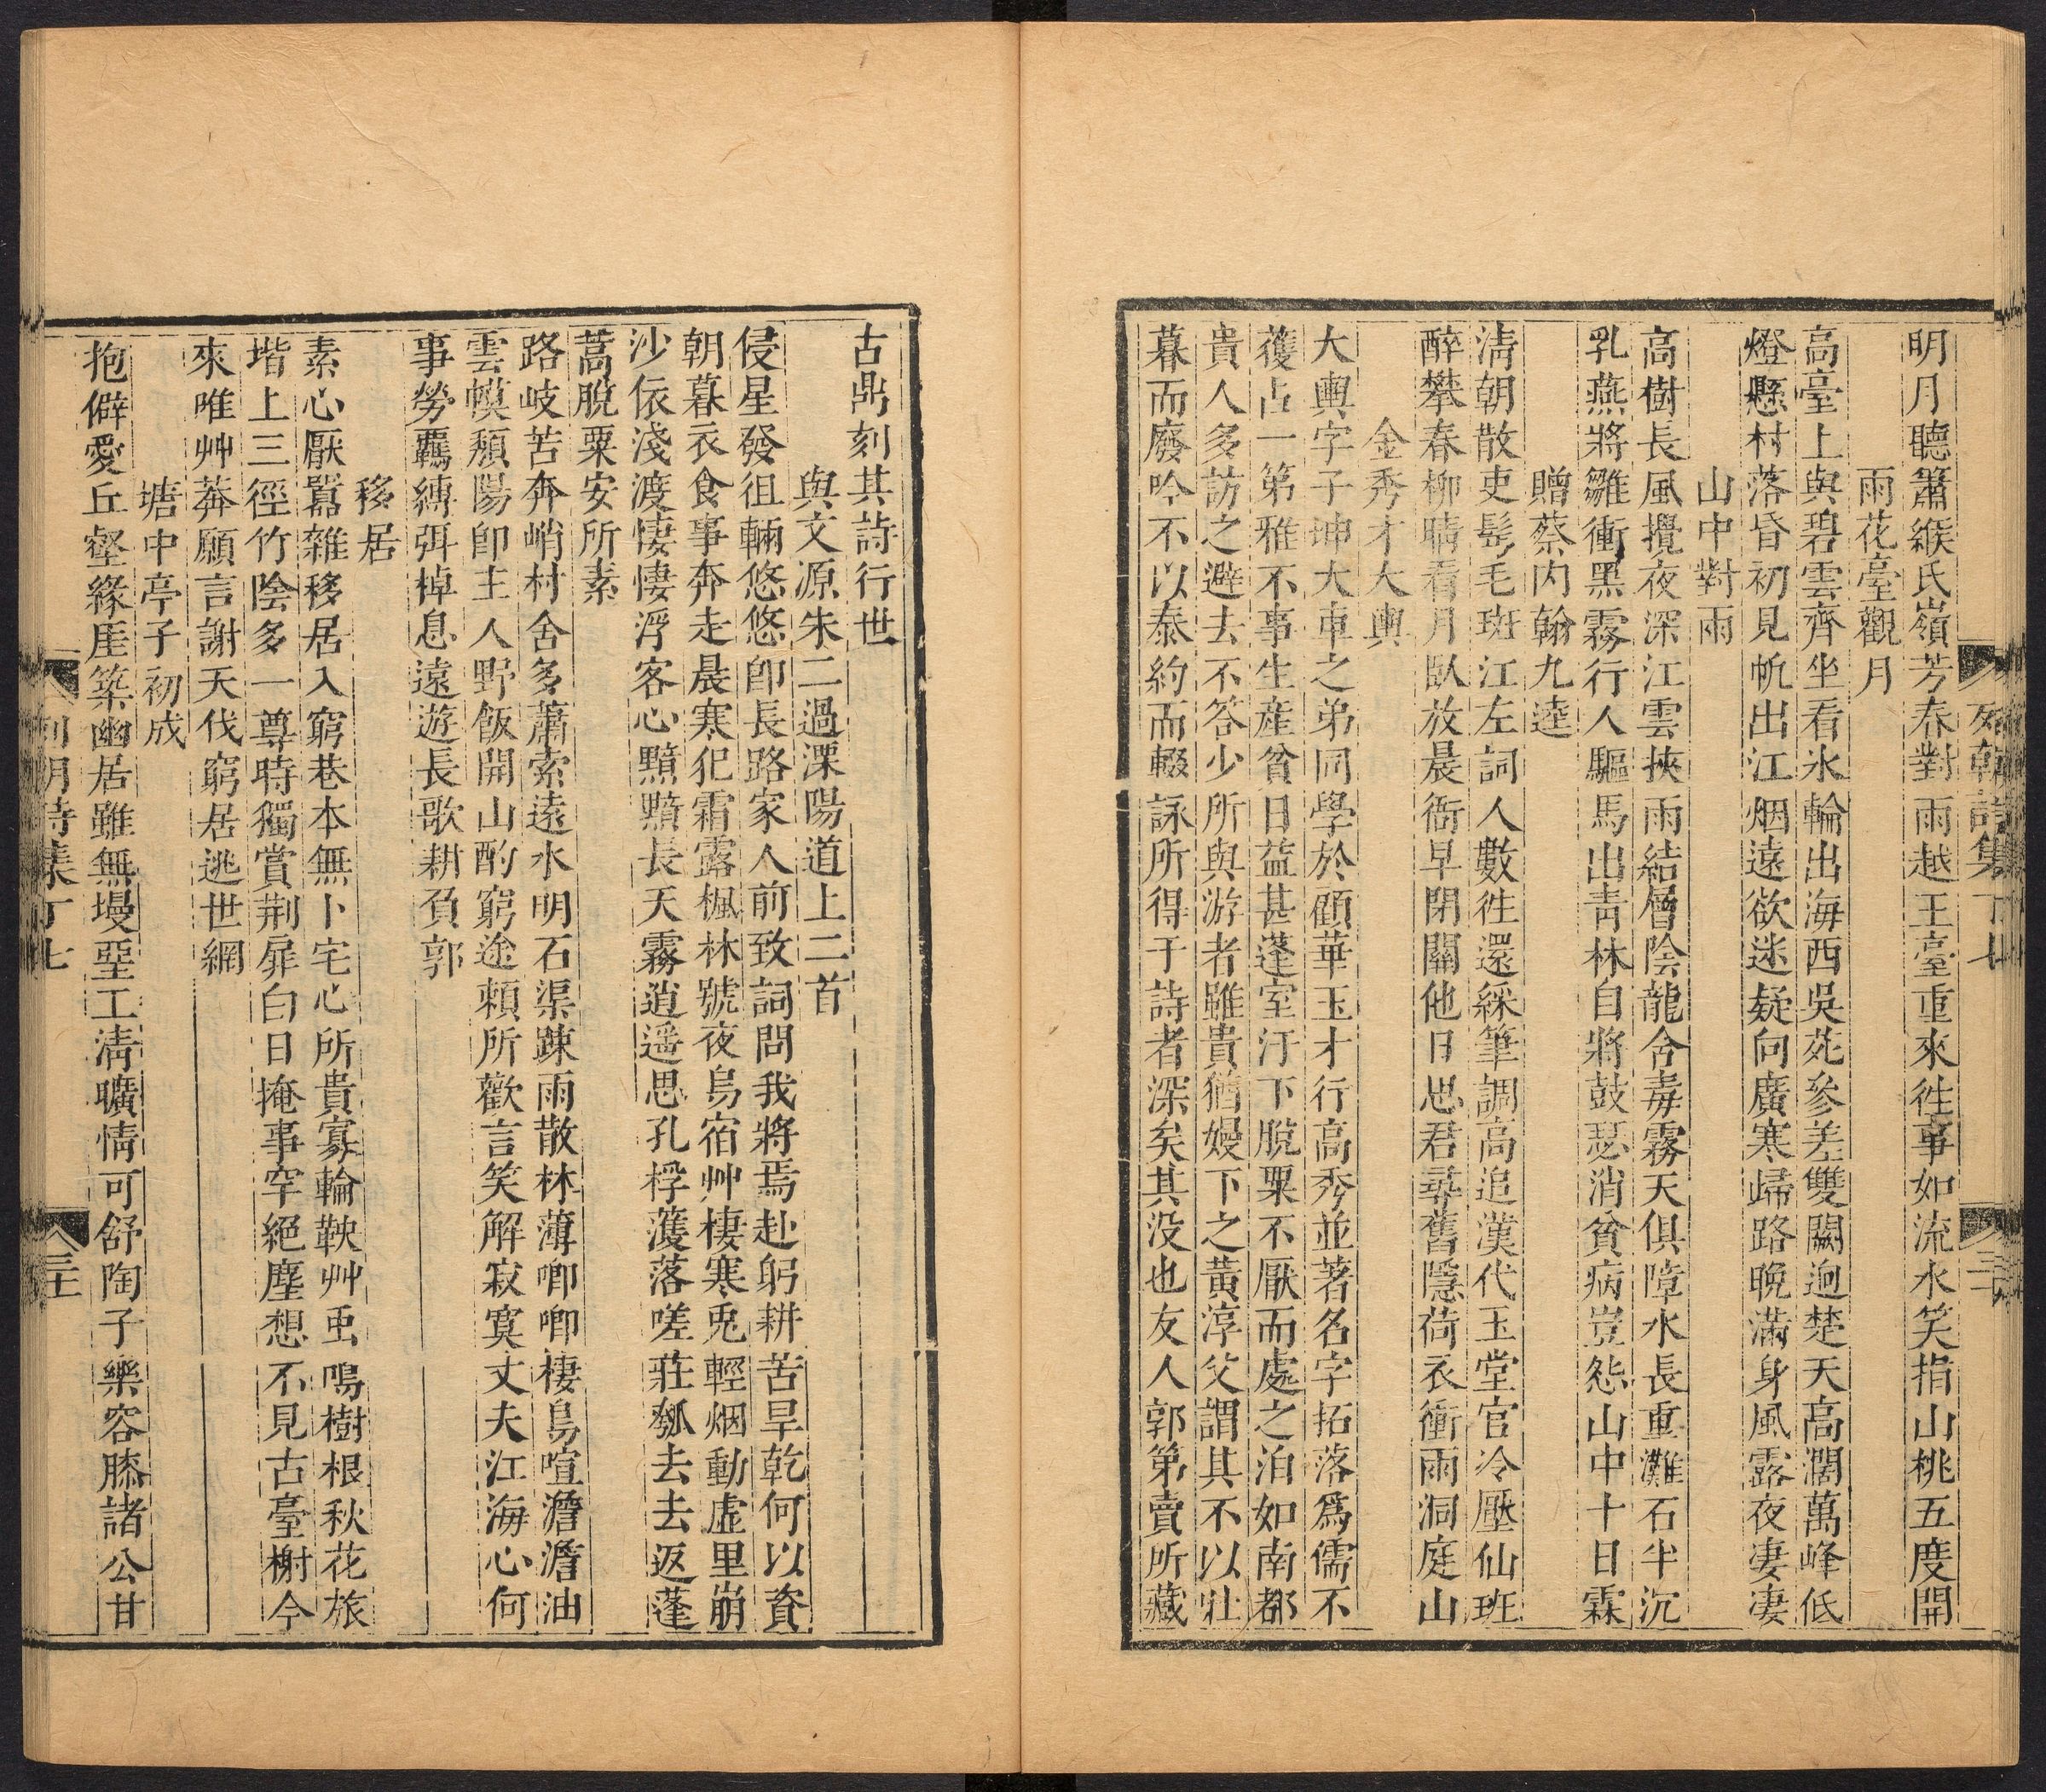 明月聽簫緱氏嶺芳春對雨越王臺重來徃事如流水笑指山桃五度開
雨花臺觀月
高臺上與碧雲齊坐看氷輪出海西吳苑參差雙闕迥楚天高濶萬峰低
燈懸村落昏初見帆出江烟遠欲迷疑向廣寒歸路晚滿身風露夜凄凄
山中對雨
高樹長風攪夜深江雲挾雨結層陰龍含毒霧天俱障水長重灘石半沉
乳燕將雛衝黑霧行人驅馬出靑林自將鼓瑟消貧病豈怨山中十日霖
贈蔡内翰九逵
淸朝散吏髩毛斑江左詞人數徃還綵筆調高追漢代玉堂官冷壓仙班
醉攀春柳晴看月臥放晨衙早閉關他日思君尋舊隱荷衣衝雨洞庭山
金秀才大輿
大輿字子坤大車之弟同學於顧華玉才行高秀並著名字拓落爲儒不
獲占一第雅不事生産貧日益甚蓬室汙下脫粟不厭而處之泊如南都
貴人多訪之避去不答少所與游者雖貴猶嫚下之黃淳父謂其不以壯
暮而廢吟不以泰約而輟詠所得于詩者深矣其没也友人郭第賣所藏
古鼎刻其詩行世
與文源朱二過溧陽道上二首
侵星發徂輛悠悠卽長路家人前致詞問我將焉赴躬耕苦旱乾何以資
朝暮衣食事奔走晨寒犯霜露楓林號夜烏宿艸棲寒兎輕烟動虛里崩
沙依淺渡悽悽浮客心黯黯長天霧逍遥思孔桴濩落嗟莊瓠去去返蓬
蒿脫粟安所素
路岐苦奔峭村舍多蕭索遠水明石渠踈雨散林薄喞喞棲烏喧澹澹油
雲幙頽陽卽主人野飯開山酌窮途頼所歡言笑解寂寞丈夫江海心何
事勞羈縛弭棹息遠遊長歌耕負郭
移居
素心厭囂雜移居入窮巷本無卜宅心所貴寡輪鞅艸虫鳴樹根秋花旅
堦上三徑竹陰多一尊時獨賞荆扉白日掩事罕絕塵想不見古臺榭今
來唯艸莽願言謝天伐窮居逃世網
塘中亭子初成
抱僻愛丘壑緣厓築幽居雖無墁堊工淸曠情可舒陶子樂容膝諸公甘
列朝詩集丁七